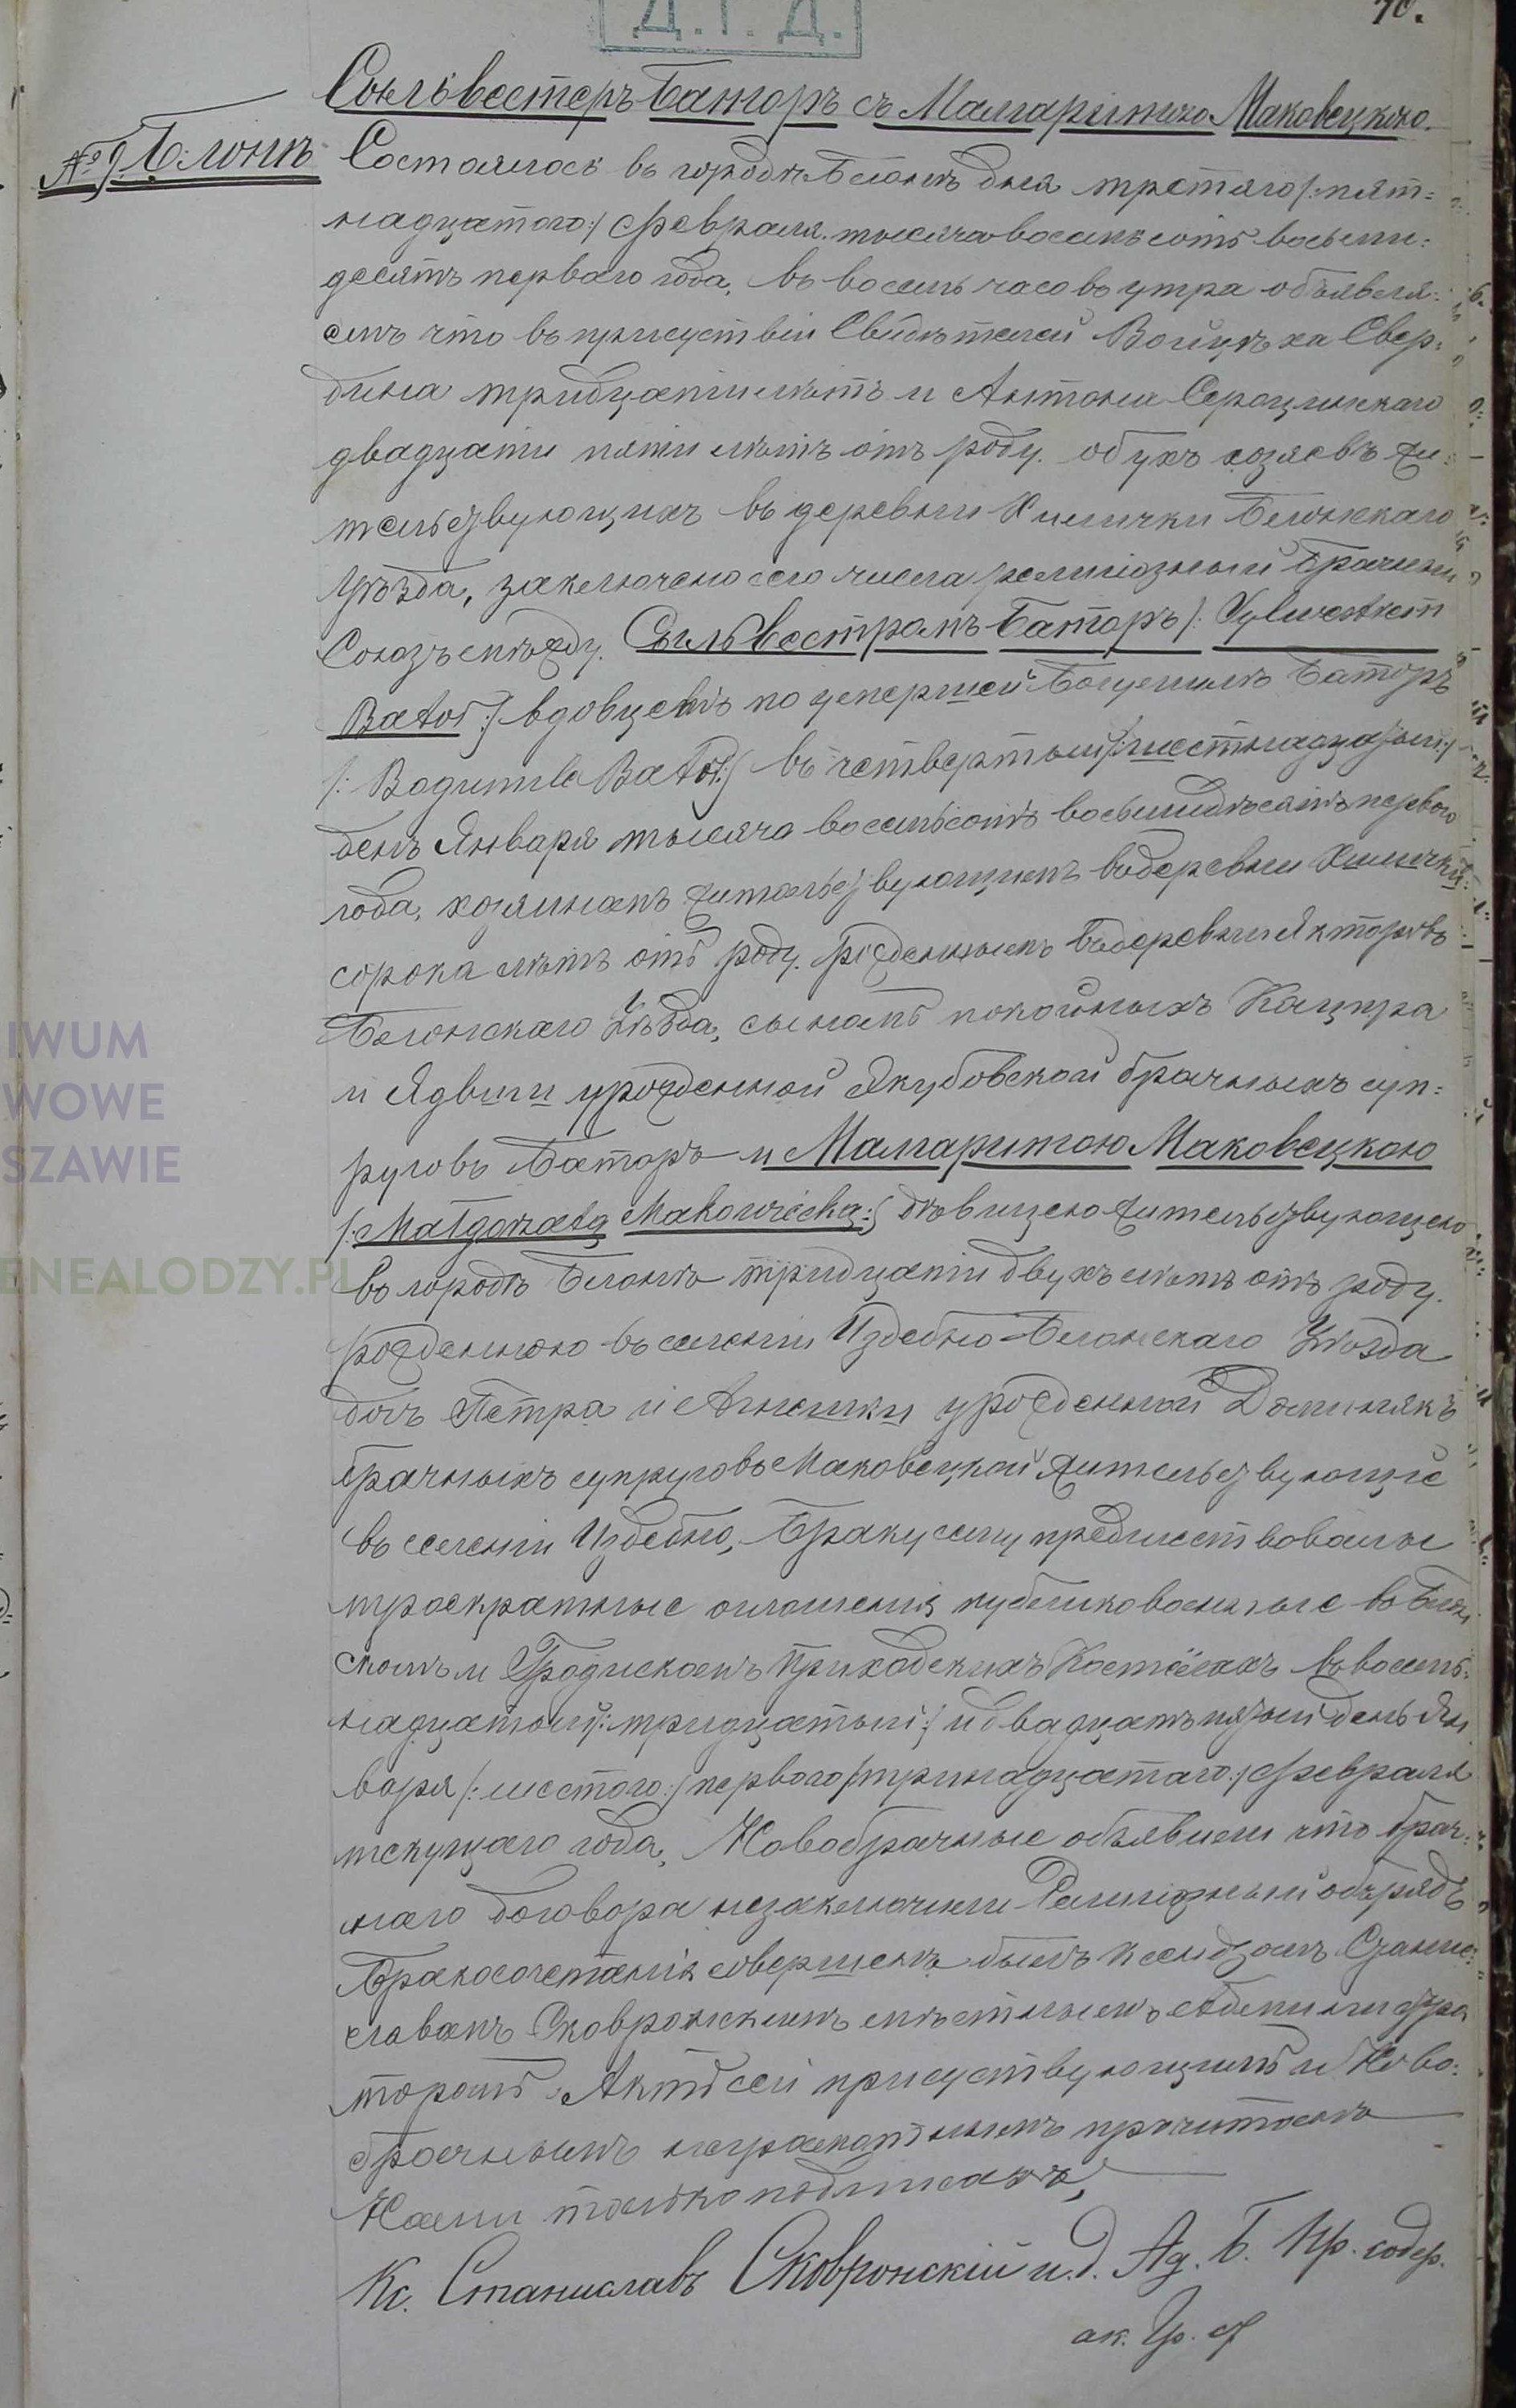 Д.Г.Д.
70.
Сыльвестеръ Баторъ съ Малгаритою Маковецкою.
№ 9 Блонъ
Состоялось въ городѣ Блонѣ дня третяго /:пят=
надцатого:/ Февраля тысяча восемьсотъ восьми=
десятъ перваго года, въ восемь часовъ утра объявля=
емъ что въ присуствіи Свидѣтелей Войцѣха Свер=
дина тридцати лѣтъ и Антонія Сероцинскаго
двадцати пяти лѣтъ отъ роду обухъ хозяевъ жи=
тельствующихъ въ деревни Хшички Блонскаго
Уѣзда, заключено сего числа религіозный брачный
Союзъ между Сыльвестрамъ Баторъ /: Sylwestrem
Bator :/ вдовцемъ по умершей Богумилѣ Баторъ
/: Bogumile Bator :/ въ четвертый /:шестнадцатый:/
день Января тысяча восемьсотъ восьмидѣсятъ первого
года, хозяинамъ жительствующимъ въ деревни Хшички
сорока лѣтъ отъ роду рожденнымъ въ деревни Якторовѣ
Блонскаго Уѣзда, сынамъ покойныхъ Кацпра
и Ядвиги урожденной Якубовской брачныхъ суп=
руговъ Баторъ и Малгаритою Маковецкою
/: Małgorzatą Makowiecką :/ дѣвицею жительствующею
въ городѣ Блонѣ тридцати двухъ лѣтъ отъ роду
рожденною въ селеніи Издебно Блонскаго Уѣзда
дочь Петра и Агнешки урожденной Доминякъ
брачныхъ супруговъ Маковецкой жительствующіе
въ селеніи Издебно, Браку сему предшествовалы
троекратные оглошенія публиковонные въ Блон
скомъ и Гродискомъ Приходскихъ Костёлахъ въ восемь=
надцатый /:тридцатый:/ и двадцатьпятый день Ян
варя /:шестого:/ первого /:тринадцатаго:/ Февраля
текущаго года, Новобрачные объявили что брач=
наго договора незаключили Религіозный обрядъ
Бракосочетанія совершенъ былъ Ксендзомъ Станис=
славамъ Сковронскимъ мѣстнымъ Администра
торомъ Актъ сей присуствующимъ и Ново=
брачнымъ неграмотнымъ прочитанъ
Нами только подписанъ,
Кс. Станиславъ Сковронскій и. д. Ад. Б. Пр. содер.
ак. Гр. С
IWUM
WOWE
SZAWIE
ENEALODZY.PL